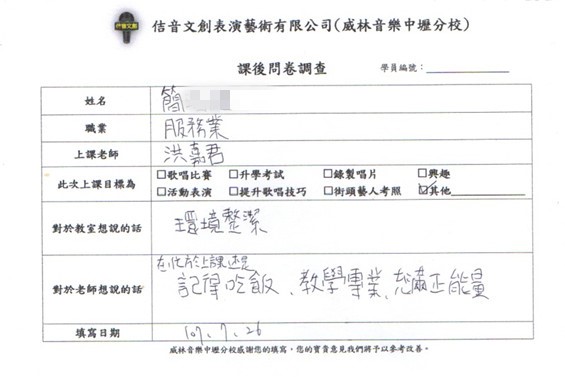 佶音文創
佶音文創表演藝術有限公司(威林音樂中壢分校)
課後問卷調查 學員編號：
姓名 簡
職業 服務業
上課老師 洪嘉君
此次上課目標為 □歌唱比賽 □升學考試 □錄製唱片 □興趣
□活動表演 □提升歌唱技巧 □街頭藝人考照 ☑其他
對於教室想說的話 環境整潔
忙於上課還是
對於老師想說的話 記得吃飯、教學專業、充滿正能量
填寫日期 107、7、26
威林音樂中壢分校感謝您的填寫，您的寶貴意見我們將予以參考改善。